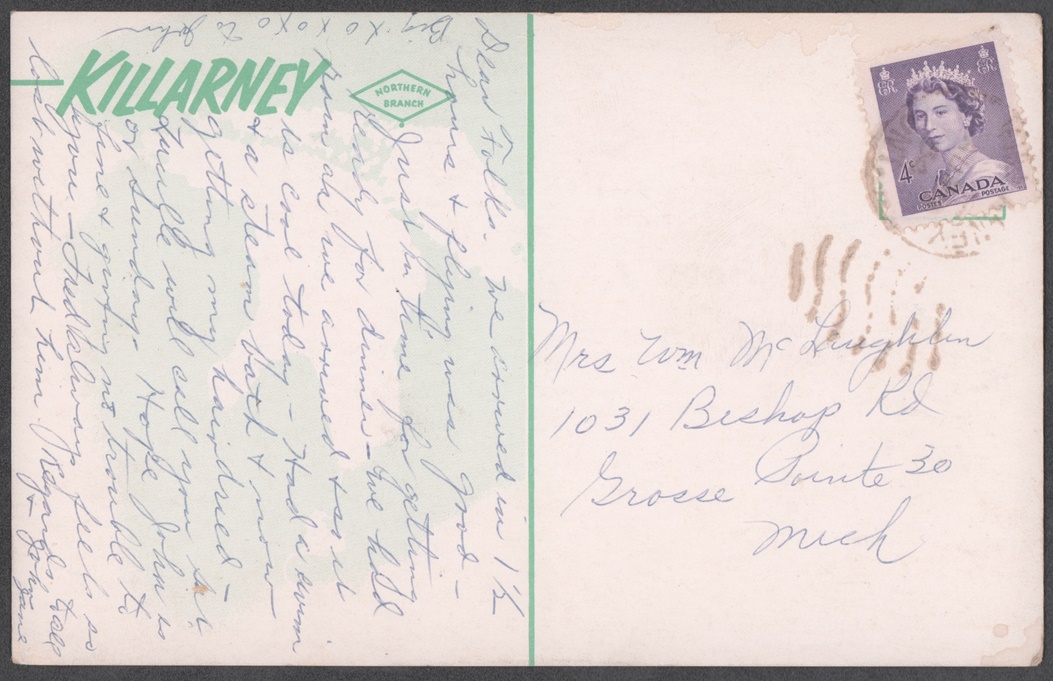 KILLARNEY
NORTHERN
BRANCH
Dear Folks - We arrived in 1½
hours & flying was good -
Just in time for getting
ready for dinner - We had
when we arrived & as it
is cool today - Had a swim
& a steam bath & now
getting my hair dried -
will call you Sat
or Sunday. Hope John is
fine & giving no trouble to
you - Fred always feels so
lost without him Regards to all
Jane
Big xo xoxo to John
EIIR
EIIR
4c
CANADA
POSTES POSTAGE
Mrs Wm McLaughlin
1031 Bishop Rd
Grosse Pointe 30
Mich